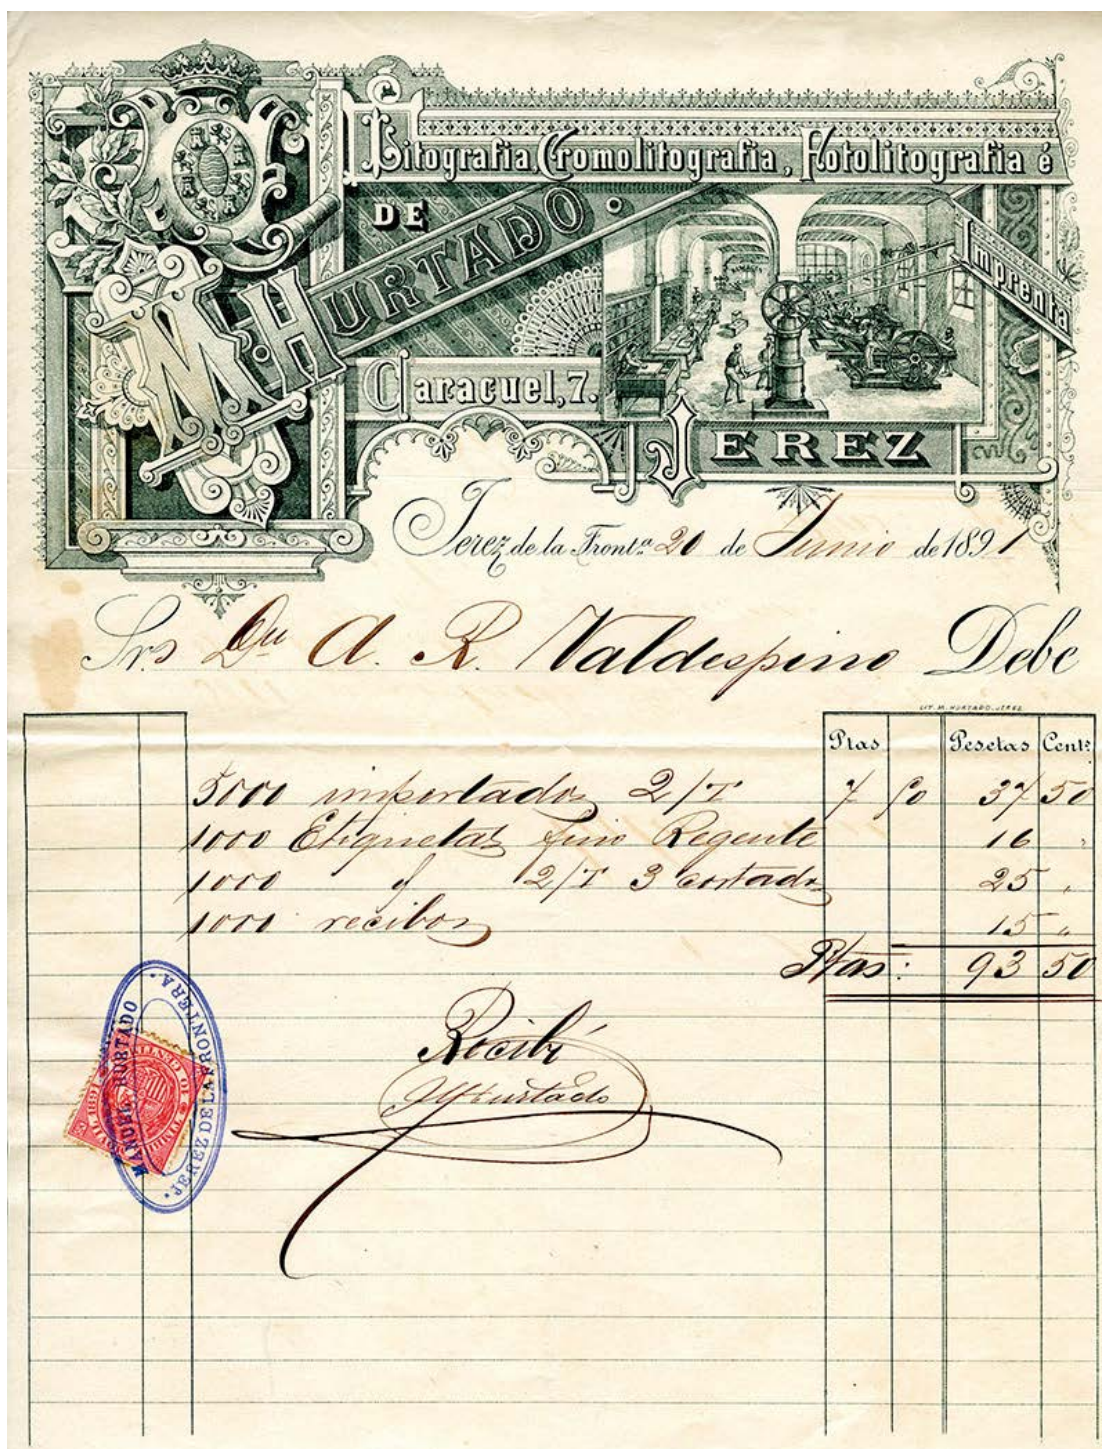 Litografia, Cromolitografia, Fotolitografia é
Imprenta
DE
M. HURTADO.
Caracuel, 7.
JEREZ
Jerez de la Front.ª 20 de Junio de 1891
Srs Dn A. R. Valdespino Debe
LIT. M. HURTADO. JEREZ
Ptas Pesetas Cent.s
5000 2/T 7 50 37 50
1000 Etiquetas fino Regente 16 "
1000 2/T 3 cortado 25 "
1000 recibos 15 "
Ptas: 93 50
Recibí
MHurtado
MANUEL HURTADO
JEREZ DE LA FRONTERA
1891